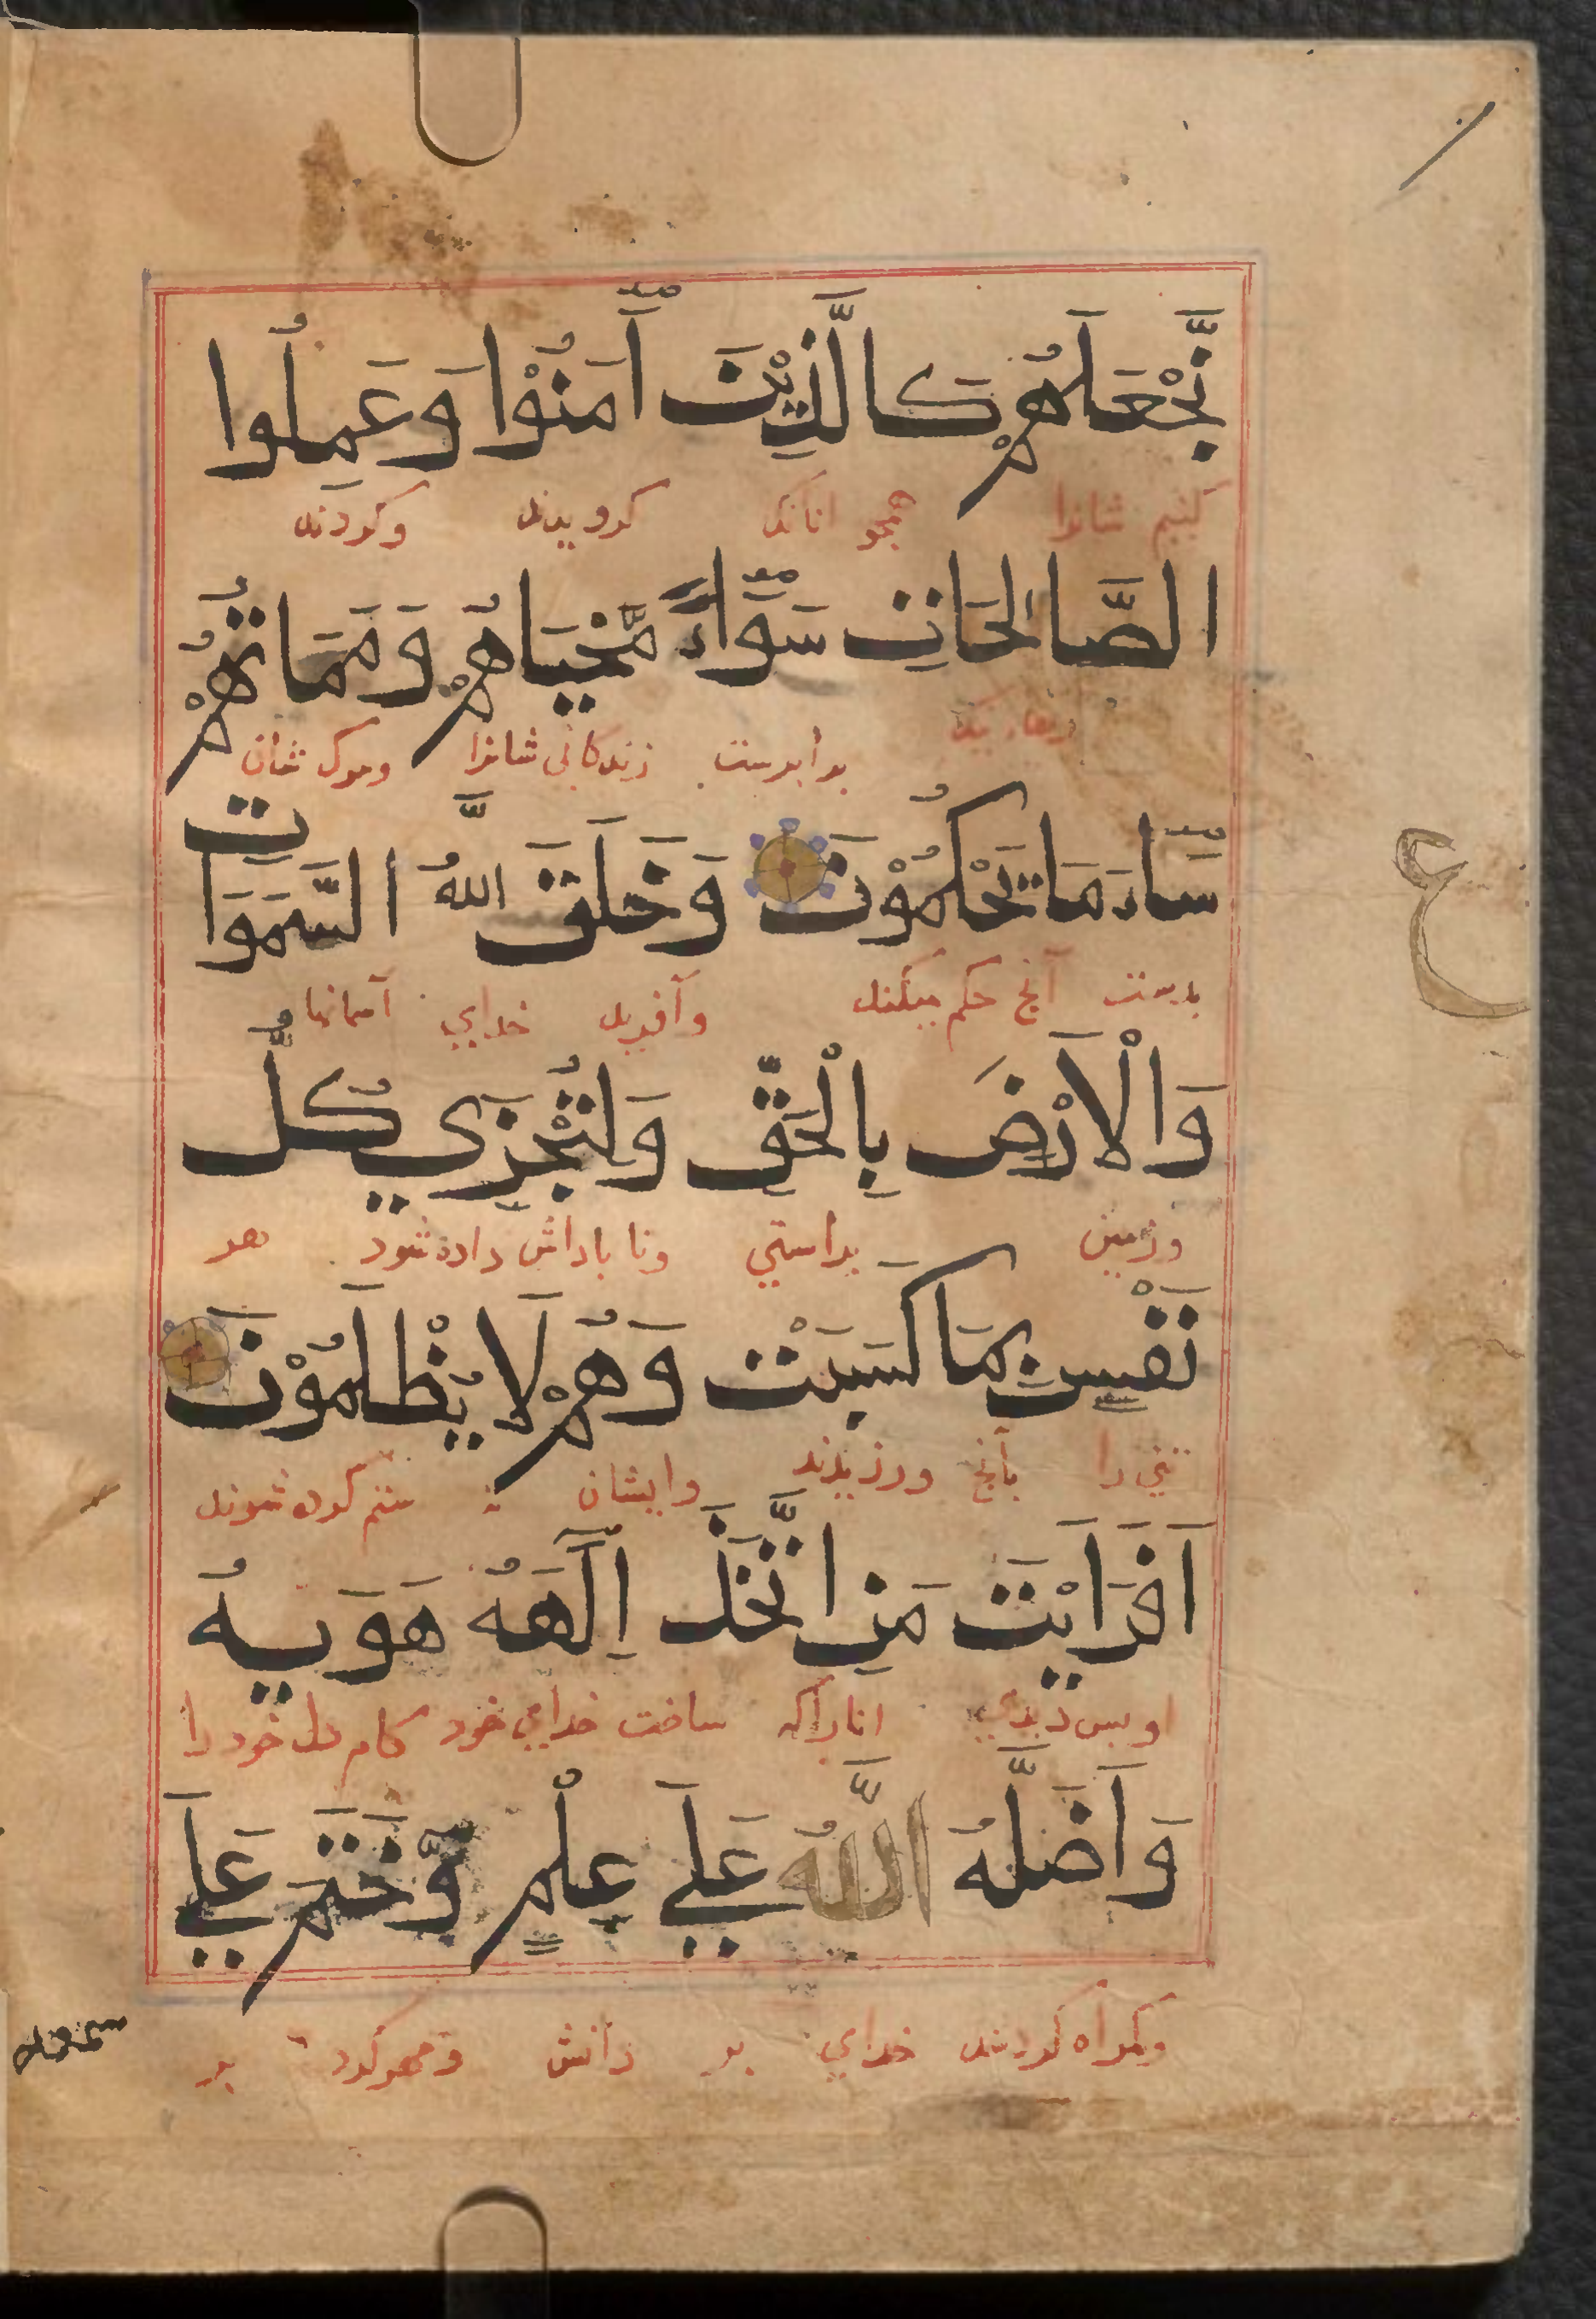 نَّجْعَلَهُمْ كَالَّذِيْنَ آمَنُوْا وَعَمِلُوا
كنيم شانرا همچو آنانكه كرويدند وكردند
الصَّالِحَاتِ سَوَآءً مَّحْيَاهُمْ وَمَمَاتُهُمْ
برابرست زندكانى شانرا ومرك شان
سَآءَ مَا يَحْكُمُوْنَ وَخَلَقَ اللّٰهُ السَّمَوَاتِ
بدست آنچ حكم ميكنند وآفريد خداي آسمانها
وَالْاَرْضَ بِالْحَقِّ وَلِتُجْزَي كُلُّ
وزمين براستي وتا پاداش داده شود هر
نَفْسٍ بِمَا كَسَبَتْ وَهُمْ لَا يُظْلَمُوْنَ
تني را بآنچ ورزيدند وايشان نه ستم كرده شوند
اَفَرَاَيْتَ مَنِ اتَّخَذَ اِلَهَهُ هَوَيهُ
او پس ديدي آنراكه ساخت خداي خود كام دل خود را
وَاَضَلَّهُ اللّٰهُ عَلَي عِلْمٍ وَّخَتَمَ عَلَي
وكمراه كردش خداي بر دانش ومهر كرد بر
سمعه
ع